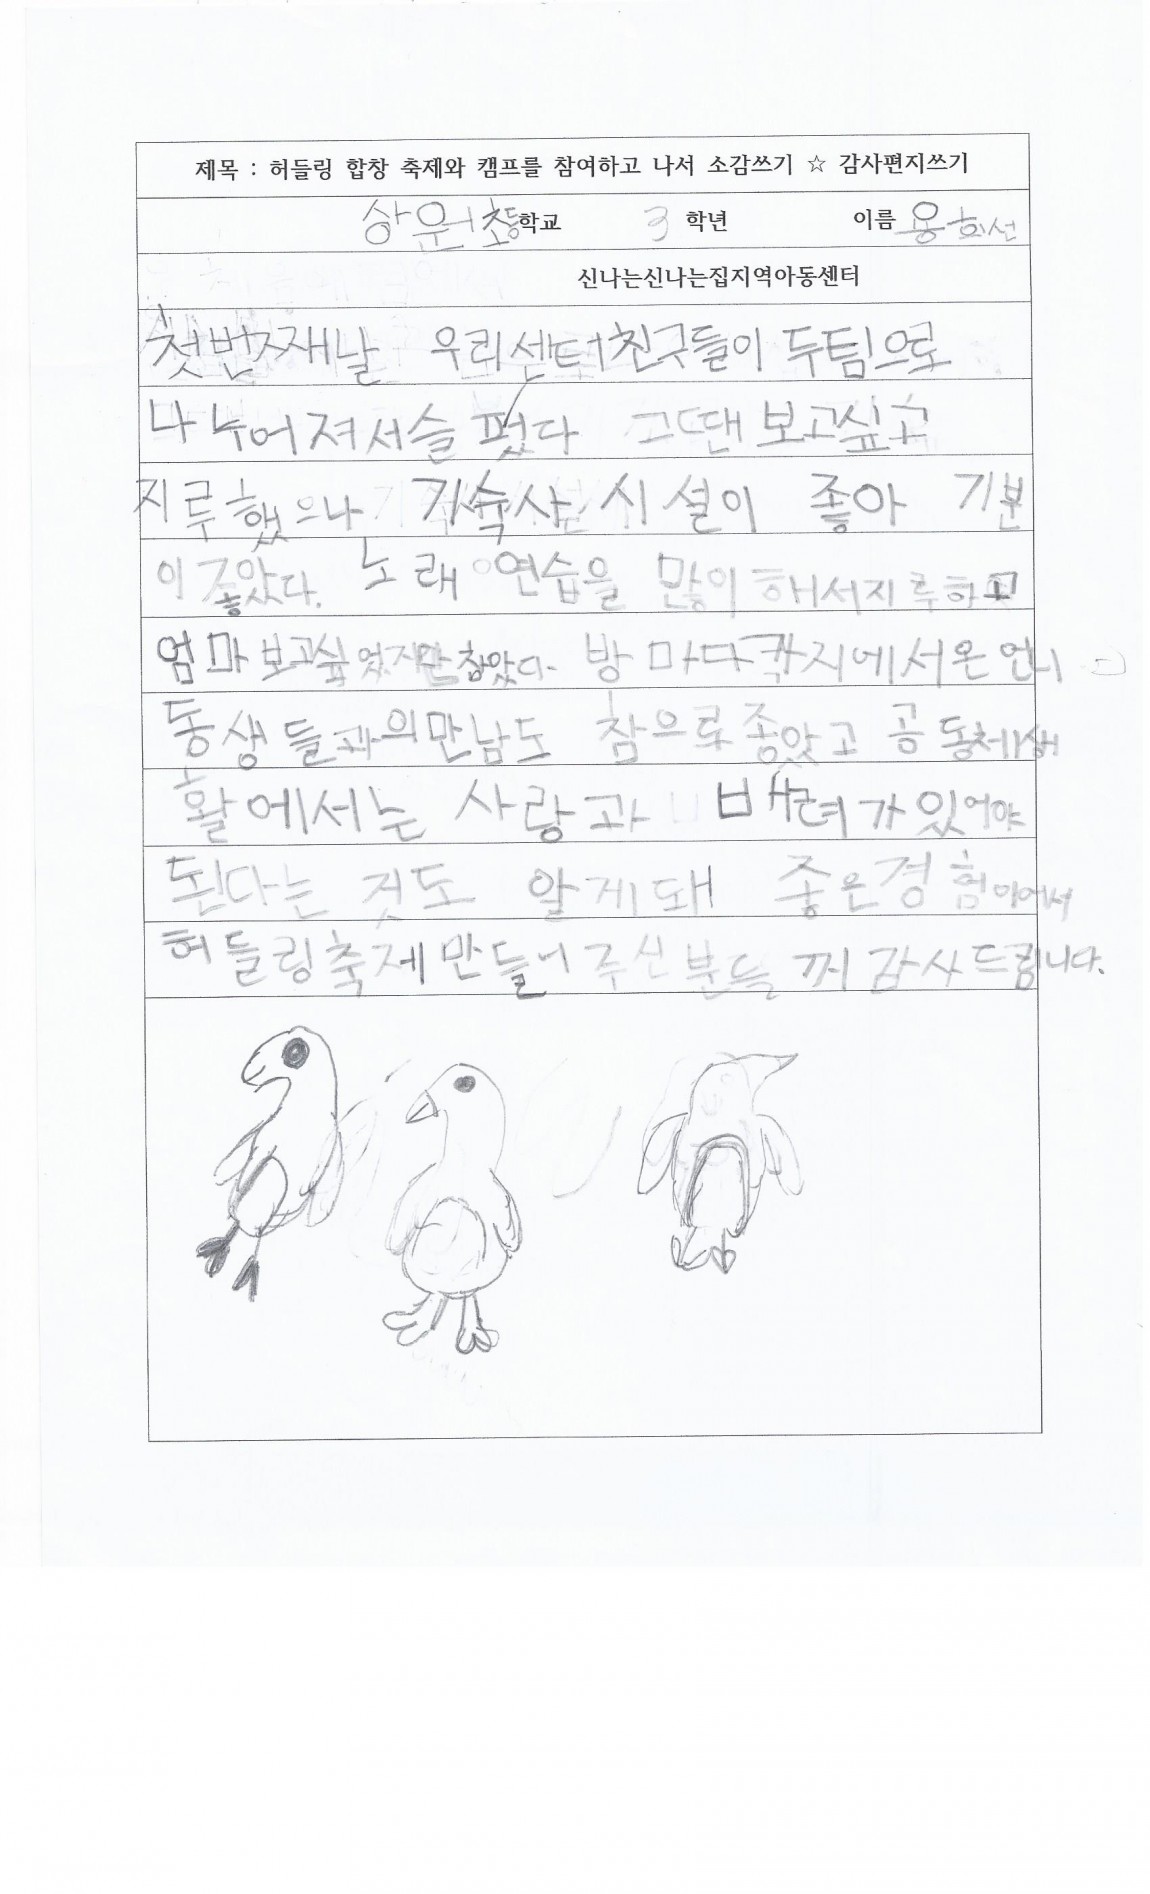 제목 : 허들링 합창 축제와 캠프를 참여하고 나서 소감쓰기 ☆ 감사편지쓰기
상원초등학교 3 학년 이름 용희선
신나는신나는집지역아동센터
첫번째날 우리센터친구들이 두팀으로
나누어져서슬펐다 그땐보고싶고
지루했으나 기숙사 시설이 좋아 기분
이 좋았다. 노래 연습을 많이해서지루하고
엄마보고싶었지만참았다. 방마다각지에서온언니
동생들과의만남도 참으로좋았고 공동체생
활에서는 사랑과 배려가있어야
된다는 것도 알게돼 좋은경험이어서
허들링축제만들어주신분들께감사드립니다.